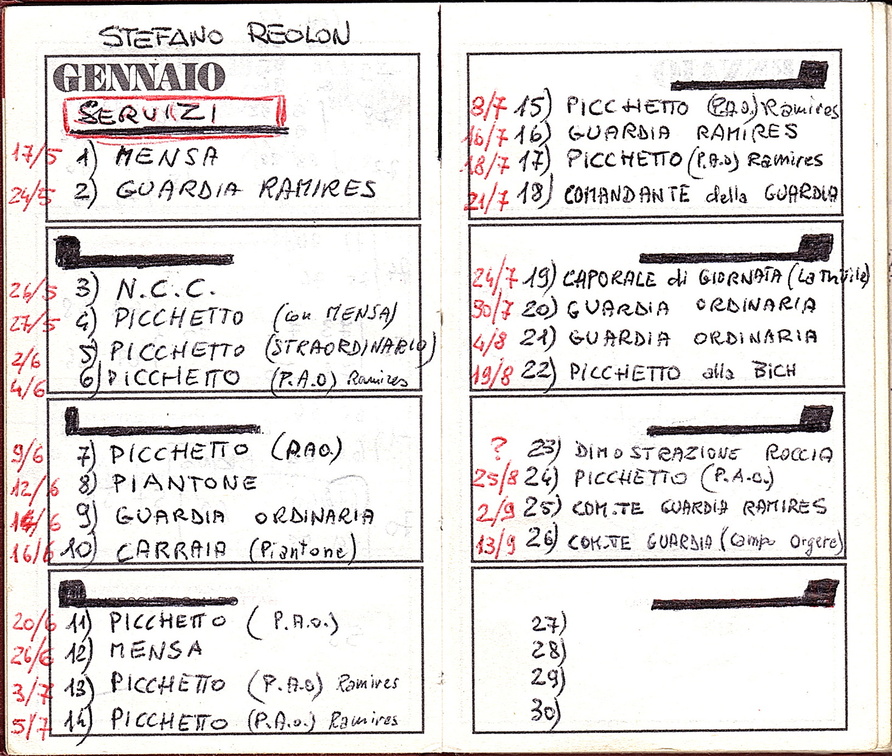 STEFANO REOLON
GENNAIO
SERVIZI
17/5 1) MENSA
24/5 2) GUARDIA RAMIRES
26/5 3) N.C.C.
27/5 4) PICCHETTO (con MENSA)
2/6 5) PICCHETTO (STRAORDINARIO)
4/6 6) PICCHETTO (P.A.O) Ramires
9/6 7) PICCHETTO (P.A.O.)
12/6 8) PIANTONE
14/6 9) GUARDIA ORDINARIA
16/6 10) CARRAIA (Piantone)
20/6 11) PICCHETTO (P.A.O.)
26/6 12) MENSA
3/7 13) PICCHETTO (P.A.O) Ramires
5/7 14) PICCHETTO (P.A.O.) Ramires
8/7 15) PICCHETTO (P.A.O.) Ramires
16/7 16) GUARDIA RAMIRES
18/7 17) PICCHETTO (P.A.O) Ramires
21/7 18) COMANDANTE della GUARDIA
24/7 19) CAPORALE di GIORNATA (La Thuile)
30/7 20) GUARDIA ORDINARIA
4/8 21) GUARDIA ORDINARIA
19/8 22) PICCHETTO alla BICH
? 23) DIMOSTRAZIONE ROCCIA
25/8 24) PICCHETTO (P.A.O.)
2/9 25) COM.TE GUARDIA RAMIRES
13/9 26) COM.TE GUARDIA (Campo Orgere)
27)
28)
29)
30)